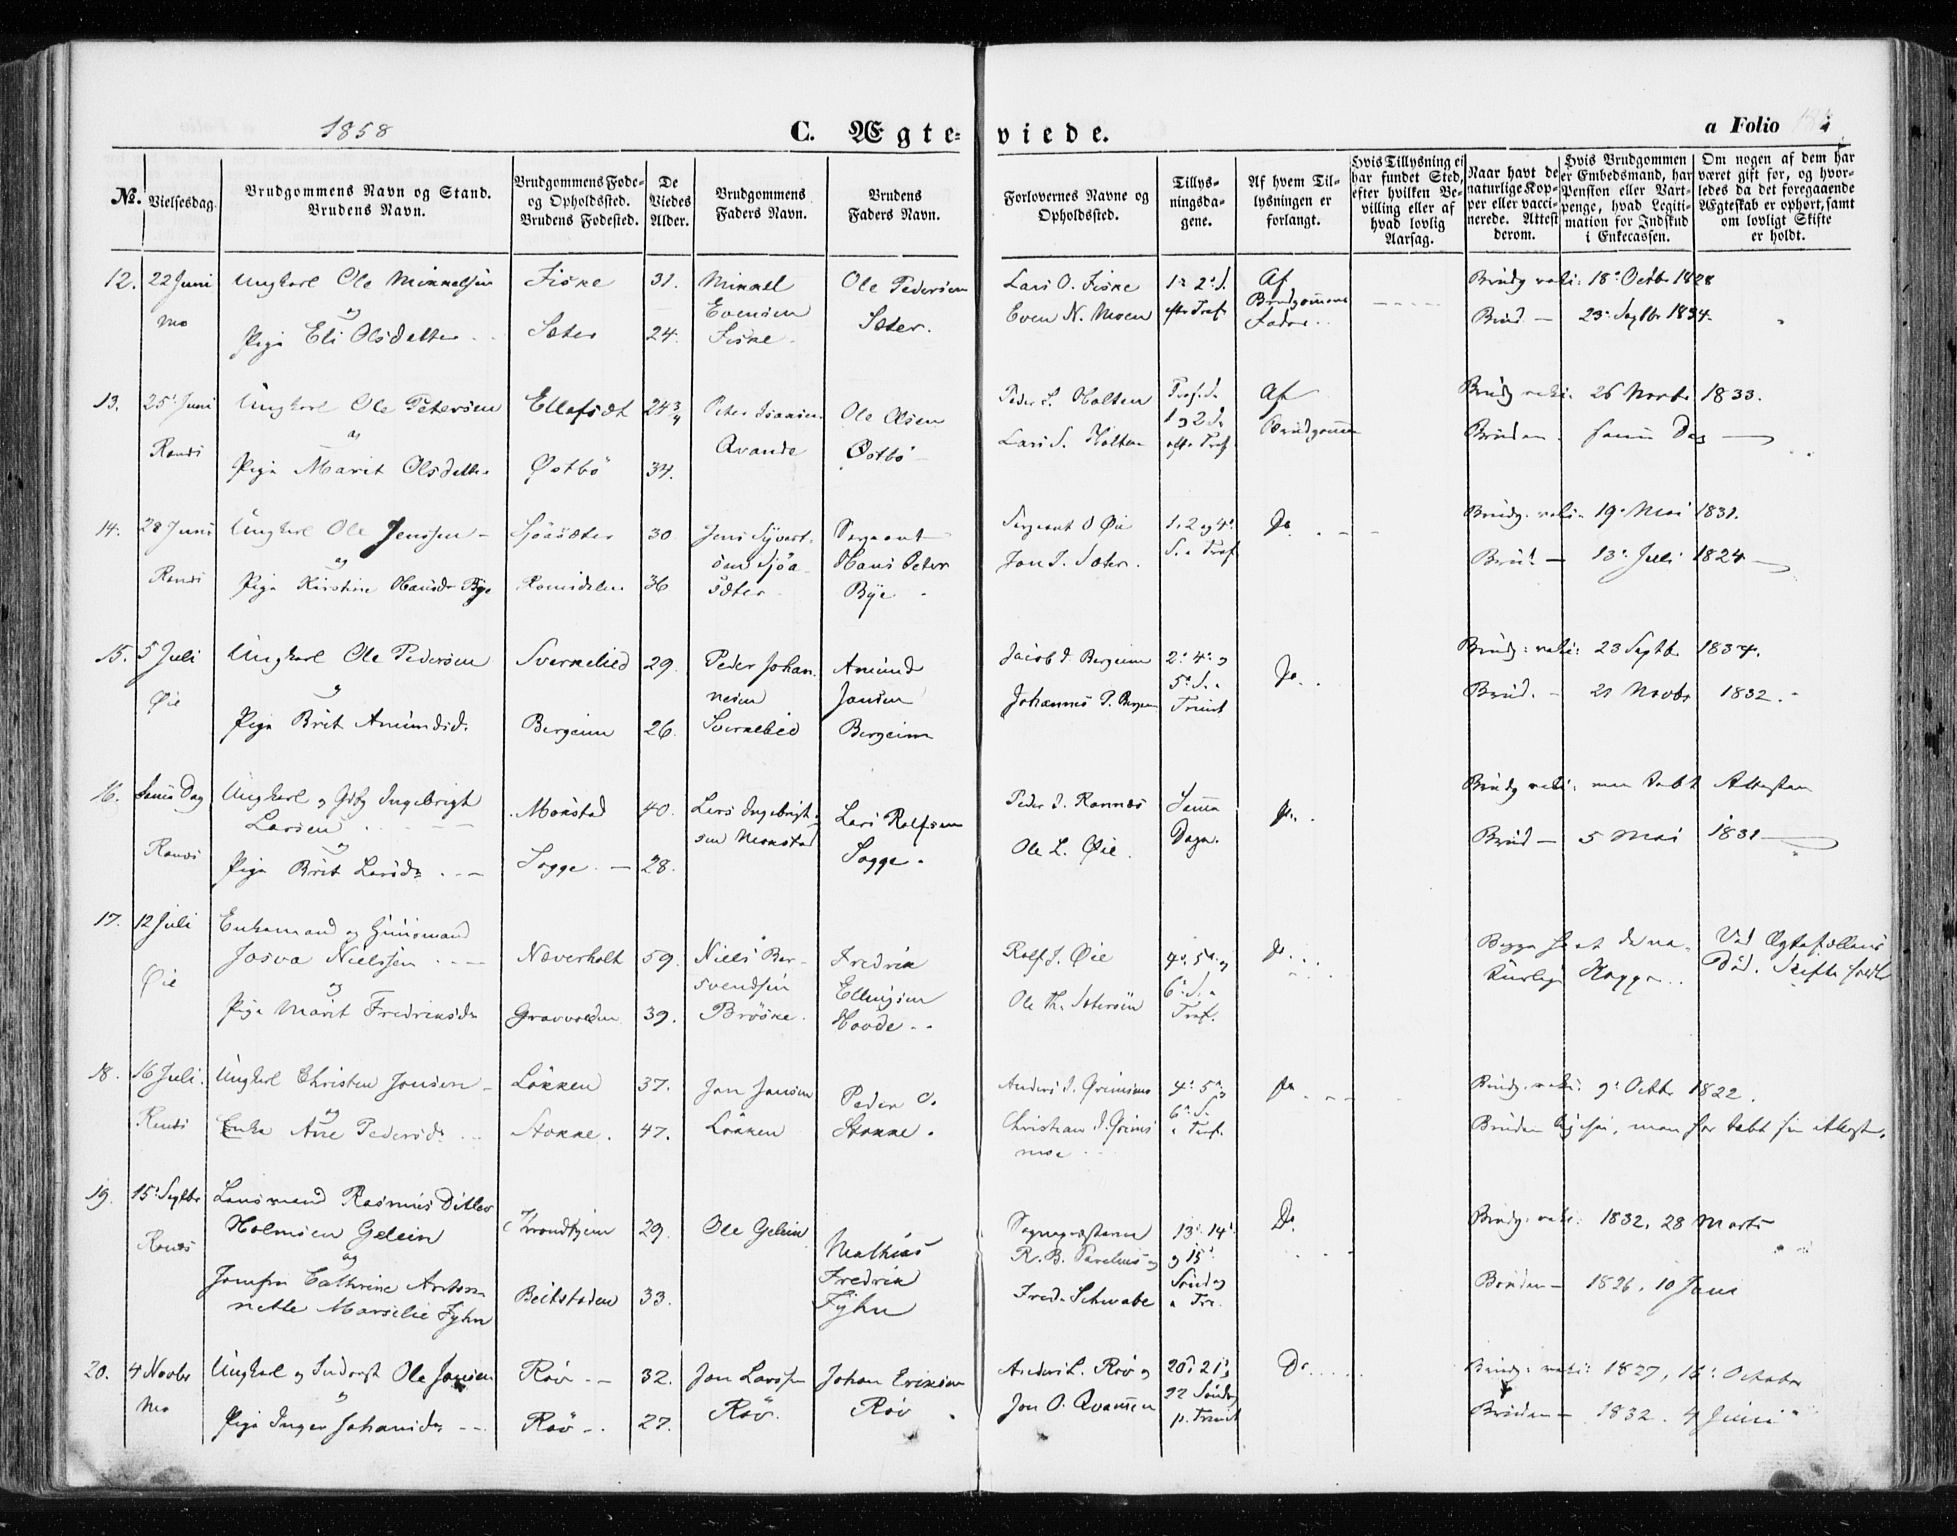 1858
C. Ægte-
viede.
a Folio
No.
Vielsesdag.
Brudgommens Navn og Stand.
Brudens Navn.
Brudgommens Føde-
og Opholdssted.
Brudens Fødested.
De
Viedes
Alder.
Brudgommens
Faders Navn.
Brudens
Faders Navn.
Forlovernes Navne og
Opholdssted.
Tillys-
ningsda-
gene.
Af hvem Til-
lysningen er
forlangt.
Hvis Tillysning ei
har fundet Sted,
efter hvilken Be-
villing eller af
hvad lovlig
Aarsag.
Naar havt de
naturlige Kop-
per eller vacci-
nerede. Attest
derom.
Hvis Brudgommen
er Embedsmand, har
Pension eller Vart-
penge, hvad Legiti-
mation for Indskud
i Enkecassen.
Om nogen af dem har
været gift før, og hvor-
ledes da det foregaaende
Ægteskab er ophørt, samt
om lovligt Skifte
er holdt.
12. 22 Juni
Mo
Ungkarl Ole Mikkelsen
og
Pige Eli Olsdatter
Fiske
Sæter
31.
24.
Mikkel
Evensen
Fiske
Ole Pedersen
Sæter.
Lars O. Fiske
Even N. Moen
1ie 2d S.
efter Tref
Af
Brudgommens
Fader
Brudg. vaki: 18 Octbr 1828
Brud — 23 Septbr 1834.
13. 25 Juni
Ranæs
Ungkarl Ole Petersen
og
Pige Marit Olsdatter
Ellefsæt
Østbö
24 3/4
34.
Peter Isaksen
Qvande
Ole Olsen
Østbö
Peder L. Holten
Lars S. Holten
Tref. S.
1 og 2 S.
efter Tref
Af
Brudgommen
Brudg vaki. 26 Novbr 1833.
Bruden. samme Dag
14. 28 Juni
Ranæs
Ungkarl Ole Jenssen
og
Pige Kirstine Hansdr Bye
Sjöasæter
Romsdalen
30.
36
Jens Syvert-
sen Sjöa-
sæter
Sergeant
Hans Peter
Bye
Sergeant O Øie
Jon I. Sæter.
1, 2 og 4
S. e Tref
Do
Brudg. vaki. 19 Mai 1831.
Brud — 13 Juli 1824
15. 5 Juli
Øie
Ungkarl Ole Pedersen
og
Pige Brit Amundsd.
Svernelied
Bergeim
29.
26.
Peder Johan-
nesen
Svernelied
Amund
Jonsen
Bergeim
Jacob I. Bergeim
Johannes P. Bergeim
2, 4 og
5 S. e
Trinit
Do.
Brudg: vaki: 23 Septb. 1834.
Brud. — 21 Novbr 1832.
16. Samme Dag
Ranæs
Ungkarl og Gbfg Ingebrigt
Larsen
og
Pige Brit Larsdr
Mokstad
Sogge
40.
28.
Lars Ingebrigt-
sen Mokstad
Lars Rolfsen
Sogge.
Peder I. Rannæs
Ole L. Øie.
Samme
Dage.
Do.
Brudg vaki: men tabt Attesten
Brud — 5 Mai 1831
17. 12 Juli
Øie
Enkemand og Huusmand
Josva Nielssen
og
Pige Marit Fredriksdr
Næverholt
Gravvolden
59.
39.
Niels Ber-
svendsen
Bröske
Fredrik
Ellingsen
Hovde
Rolf I. Øie
Ole Th. Sætersöen
4, 5 og
6 S. e
Tref.
Do.
Begge havt de na-
turlige Kopper
Ved Ægtefællens
Död. Skifte holdt
18. 16 Juli.
Ranæs
Ungkarl Christen Jonsen
og
Enke Ane Pedersd.
Løkken
Stokke.
37.
47.
Jon Jonsen
Løkken
Peder O.
Stokke.
Anders I. Grimsmo
Christian I. Grims-
moe
4, 5 og
6 S.
e Tref.
Do
Brudg. vaki: 9 Octbr 1822.
Bruden ligesaa, men har tabt sin Attest.
19. 15 Septbr
Ranæs
Lensmand Rasmus Ditlev
Holmsen Gelein
og
Jomfru Cathrine Anton-
nette Marselie Fyhn
Trondhjem
Beitstaden
29.
33.
Ole Gelein
Mathias
Fredrik
Fyhn
Sognepræsten
R. B. Parelius og
Fred. Schwabe
13, 14
og 15
Söndag
e Tre.
Do
Brudg. vaki: 1832, 28 Marts
Bruden — 1826, 10 Juni
20. 4 Novbr
Mo
Ungkarl og Inderst Ole Jonsen
og
Pige Inger Johansdr
Røv
Røv
32.
27.
Jon Larssen
Røv.
Johan Eriksen
Røv
Anders L. Røv og
Jon O. Qvammen
20 21 og
22 Söndag
p. Trinit
Do
Brudg: vaki: 1827, 16 October
Bruden — 1832. 4 Juni